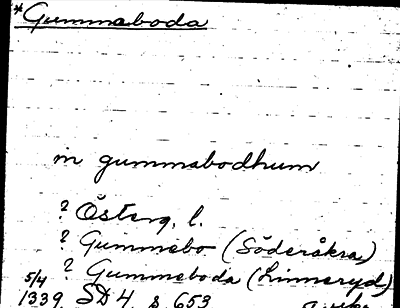 *Gummaboda
in gummabodhum
? Österg. l.
? Gummebo (Söderåkra)
? Gummeboda (Linneryd)
5/4
1339 SD 4 s 653